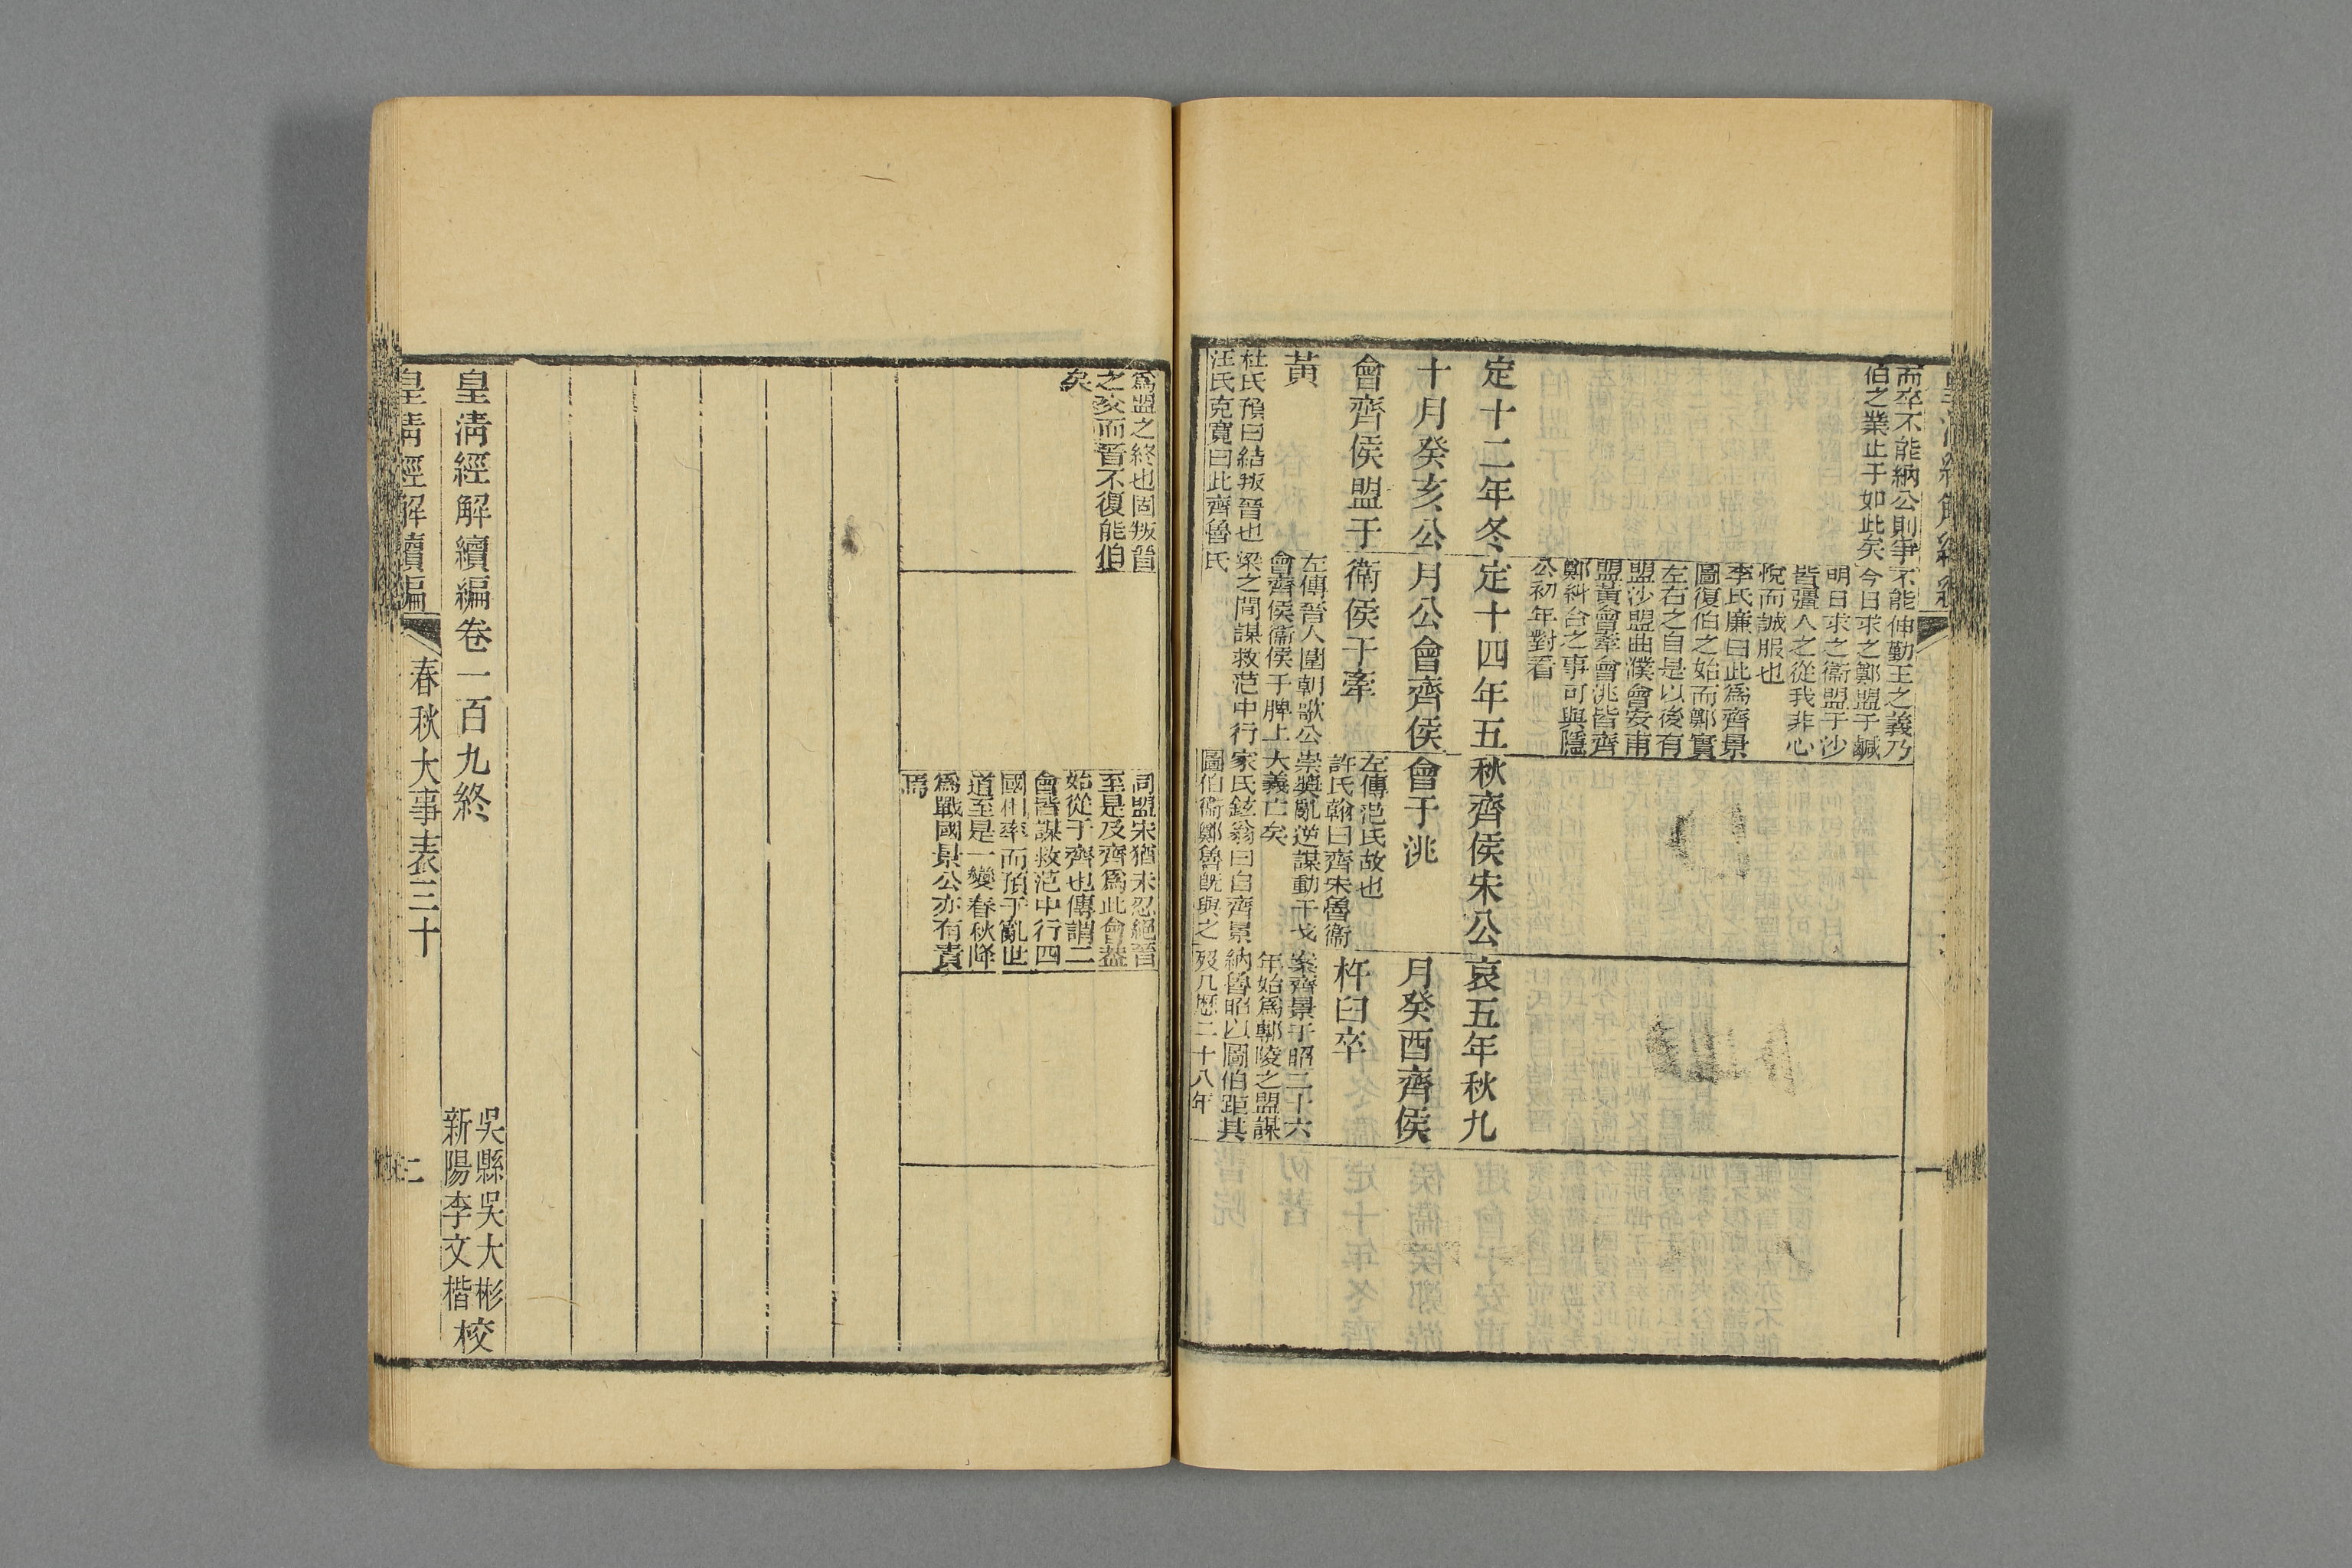 而卒不能納公則爭
伯之業止于如此矣
不能伸勤王之義乃
今日求之鄭盟于鹹
明日求之衞盟于沙
皆彊人之從我非心
悅而誠服也
李氏廉曰此爲齊景
圖復伯之始而鄭實
左右之自是以後有
盟沙盟曲濮會安甫
盟黃會牽會洮皆齊
鄭糾合之事可與隱
公初年對看
定十二年冬
十月癸亥公
會齊侯盟于
黃
杜氏預曰結叛晉也
汪氏克寬曰此齊魯
定十四年五
月公會齊侯
衞侯于牽
左傳晉人圍朝歌公
會齊侯衞侯于脾上
梁之間謀救范中行
氏
秋齊侯宋公
會于洮
左傳范氏故也
許氏翰曰齊宋魯衞
崇奬亂逆謀動干戈
大義亡矣
家氏鉉翁曰自齊景
圖伯衞鄭魯旣與之
哀五年秋九
月癸酉齊侯
杵臼卒
案齊景于昭二十六
年始爲鄟陵之盟謀
納魯昭以圖伯距其
歿凡歷二十八年
爲盟之終也固叛晉
之亥而晉不復能伯
矣
同盟宋猶未忍絕晉
至是及齊爲此會葢
始從于齊也傳謂二
會皆謀救范中行四
國相率而預于亂世
道至是一變春秋降
爲戰國景公亦有責
焉
皇清經解續編卷一百九終
吳縣吳大彬
新陽李文楷
校
皇清經解續編
春秋大事表三十
二